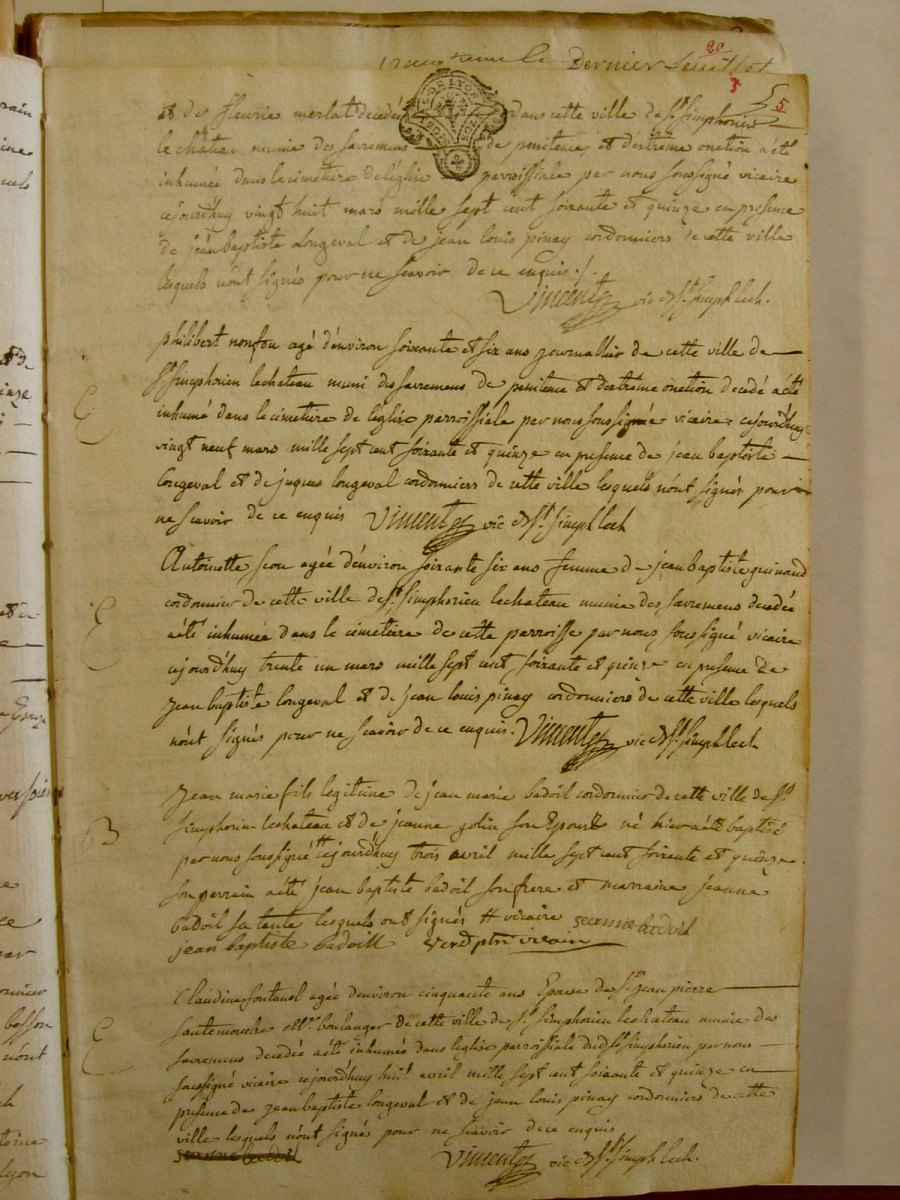 Dernier feuillet
20
5
et de fleurie merlat decedée dans cette ville de st. simphorien
le château munie des sacremens de penitence et d'extrême onction a été
inhumée dans le cimetiere de l'église parroissiale par nous soussigné vicaire
cejourd'huy vingt huit mars mille sept cent soixante et quinze en presence
de jean baptiste Longeval et de jean louis pinay cordonniers de cette ville
lesquels n'ont signés pour ne sçavoir de ce enquis ./.
Vincent vic de St. Simph lech.
philibert nonfou agé d'environ soixante et six ans journallier de cette ville de
St. Simphorien lechateau muni des sacremens de penitence et d'extrême onction decedé a été
inhumé dans le cimetiere de l'église parroissiale par nous soussigné vicaire cejourd'huy
vingt neuf mars mille sept cent soixante et quinze en presence de jean baptiste
Longeval et de jaques longeval cordonniers de cette ville lesquels n'ont signés pour
ne scavoir de ce enquis Vincent vic de St. Simph lech
E
Antoinette seon agée d'environ soixante six ans femme de jean baptiste guinand
cordonnier de cette ville de St. Simphorien lechateau munie des sacremens decedée
a été inhumée dans le cimetiere de cette parroisse par nous soussigné vicaire
cejourd'huy trente un mars mille sept cent soixante et quinze en presence de
jean baptiste longeval et de jean louis pinay cordonniers de cette ville lesquels
n'ont signés pour ne scavoir de ce enquis. Vincent vic de St. Simph lech
E
Jean marie fils legitime de jean marie badoil cordonnier de cette ville de St.
Simphorien lechateau et de jeanne golin son Epouse né hier a été baptisé
par nous soussigné # cejourd'huy trois avril mille sept cent soixante et quinze
son parrain a été jean baptiste badoil son frere et marraine jeanne
badoil sa tante lesquels ont signés # vicaire
B
jean baptiste badoill
Claudine fontanel agée d'environ cinquante ans Epouse de Sr. jean pierre
Sautemouche boulanger de cette ville de St. Simphorien lechateau munie des
sacremens decedée a été inhumée dans l'eglise parroissiale dud. St. Simphorien par nous
soussigné vicaire cejourd'huy huit avril mille sept cent soixante et quinze en
presence de jean baptiste longeval et de jean louis pinay cordonniers de cette
ville lesquels n'ont signés pour ne scavoir de ce enquis
E
Vincent vic de St. Simph lech.